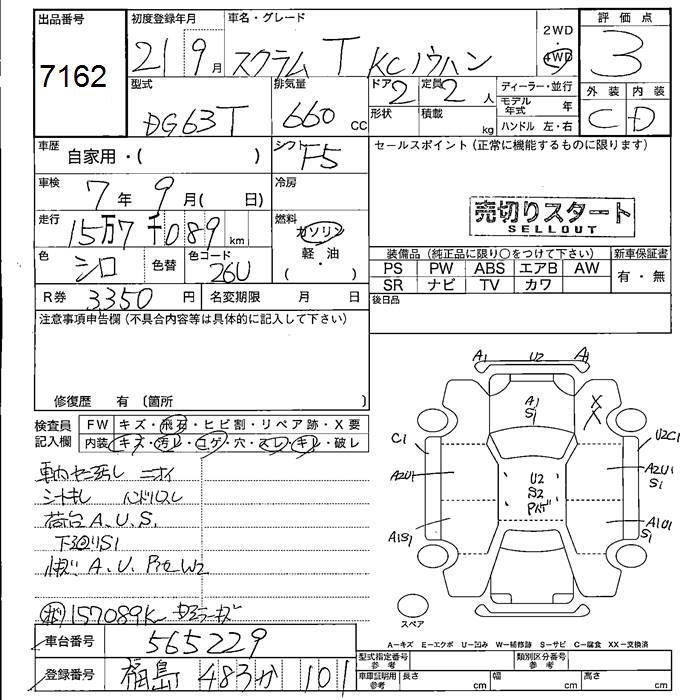 出品番号 初度登録年月 車名・グレード 2WD 評価点
7162 21 9月 スクラム T KC ノウハン 4WD 3
型式 排気量 ドア 2 定員 2人 ディーラー・並行 外装 内装
DG63T 660 cc 形状 積載 kg モデル年式 年 C D
ハンドル 左・右
車歴 自家用・( ) シフト F5 セールスポイント(正常に機能するものに限ります)
車検 7年 9月( 日) 冷房
売切りスタート
SELLOUT
走行 15万7千089km 燃料 ガソリン・軽・油 ( )
色 シロ 色替 色コード 26U
装備品(純正品に限り○をつけて下さい) 新車保証書
PS PW ABS エアB AW 有・無
SR ナビ TV カワ
R券 3350円 名変期限 月 日 後日品
注意事項申告欄(不具合内容等は具体的に記入して下さい)
修復歴 有 〔箇所 〕
検査員記入欄 FW キズ・飛石・ヒビ割・リペア跡・X要
内装 キズ・汚レ・コゲ・穴・スレ・キレ・破レ
A1 U2 A1
A1 S1 X X
C1 U2C1
A2U1 U2 S2 A2U1 S1
A1S1 A1U1 S1
スペア
ニオイ
シートキレ ハンドルスレ
荷台 A.U.S1
下廻りS1
A.U. W2
157089K
車台番号 565229
A-キズ E-エクボ U-凹み W-補修跡 S-サビ C-腐食 XX-交換済
登録番号 福島 483 か 101
型式指定番号 参考 類別区分番号 参考
車庫証明用 参考 長さ cm 幅 cm 高さ cm